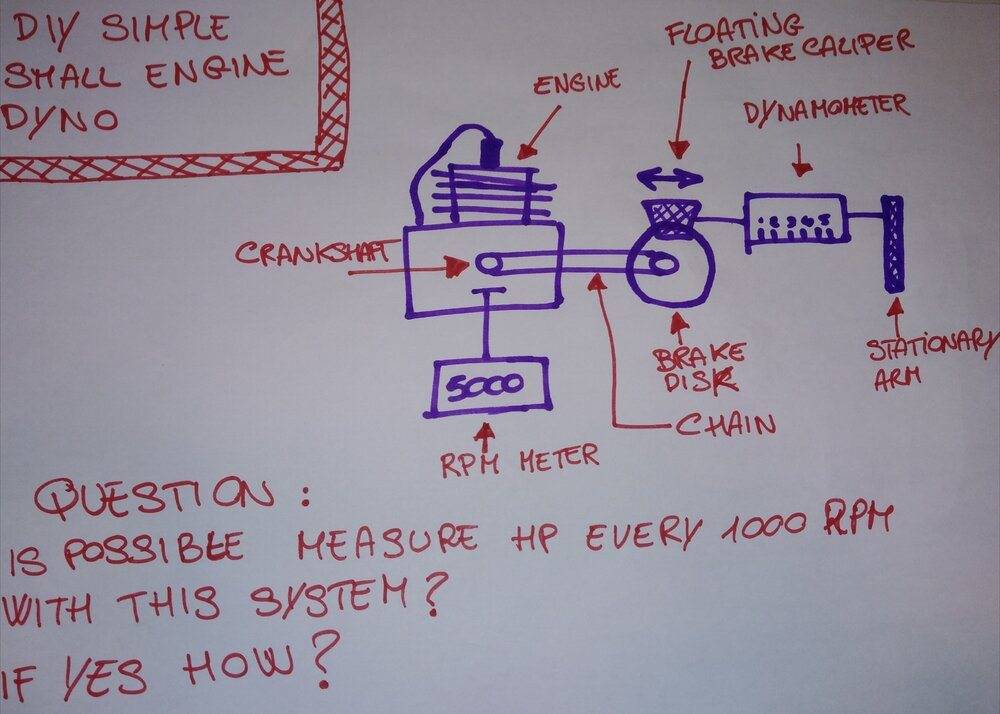 DIY SIMPLE
SMALL ENGINE
DYNO
FLOATING
BRAKE CALIPER
ENGINE
DYNAMOMETER
1 2 3 4 5
CRANKSHAFT
5000
BRAKE
DISK
STATIONARY
ARM
CHAIN
RPM METER
QUESTION:
IS POSSIBLE MEASURE HP EVERY 1000 RPM
WITH THIS SYSTEM?
IF YES HOW?